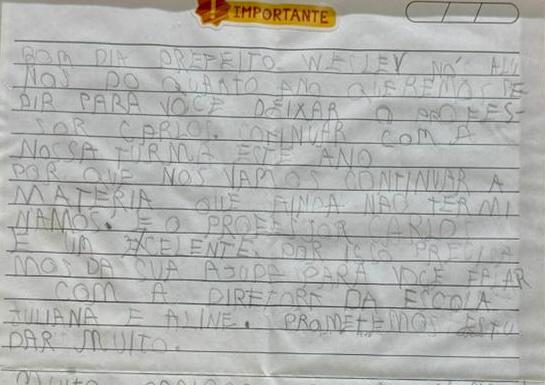 IMPORTANTE
BOM DIA PREFEITO WESLEY NÓS ALU
NOS DO QUARTO ANO QUEREMOS PE
DIR PARA VOCE DEIXAR O PROFES-
SOR CARLOS. CONTINUAR COM A
NOSSA TURMA ESTE ANO
POR QUE NOS VAMOS CONTINUAR A
MATERIA QUE AINDA NAO TERMI
NAMOS. E O PROFESSOR CARLOS
E UM EXCELENTE. POR ISSO PRECISA
MOS DA SUA AJUDA PARA VOCE FALAR
COM A DIRETORA DA ESCOLA
JULIANA E ALINE. PROMETEMOS ESTU
DAR MUITO.
MUITO